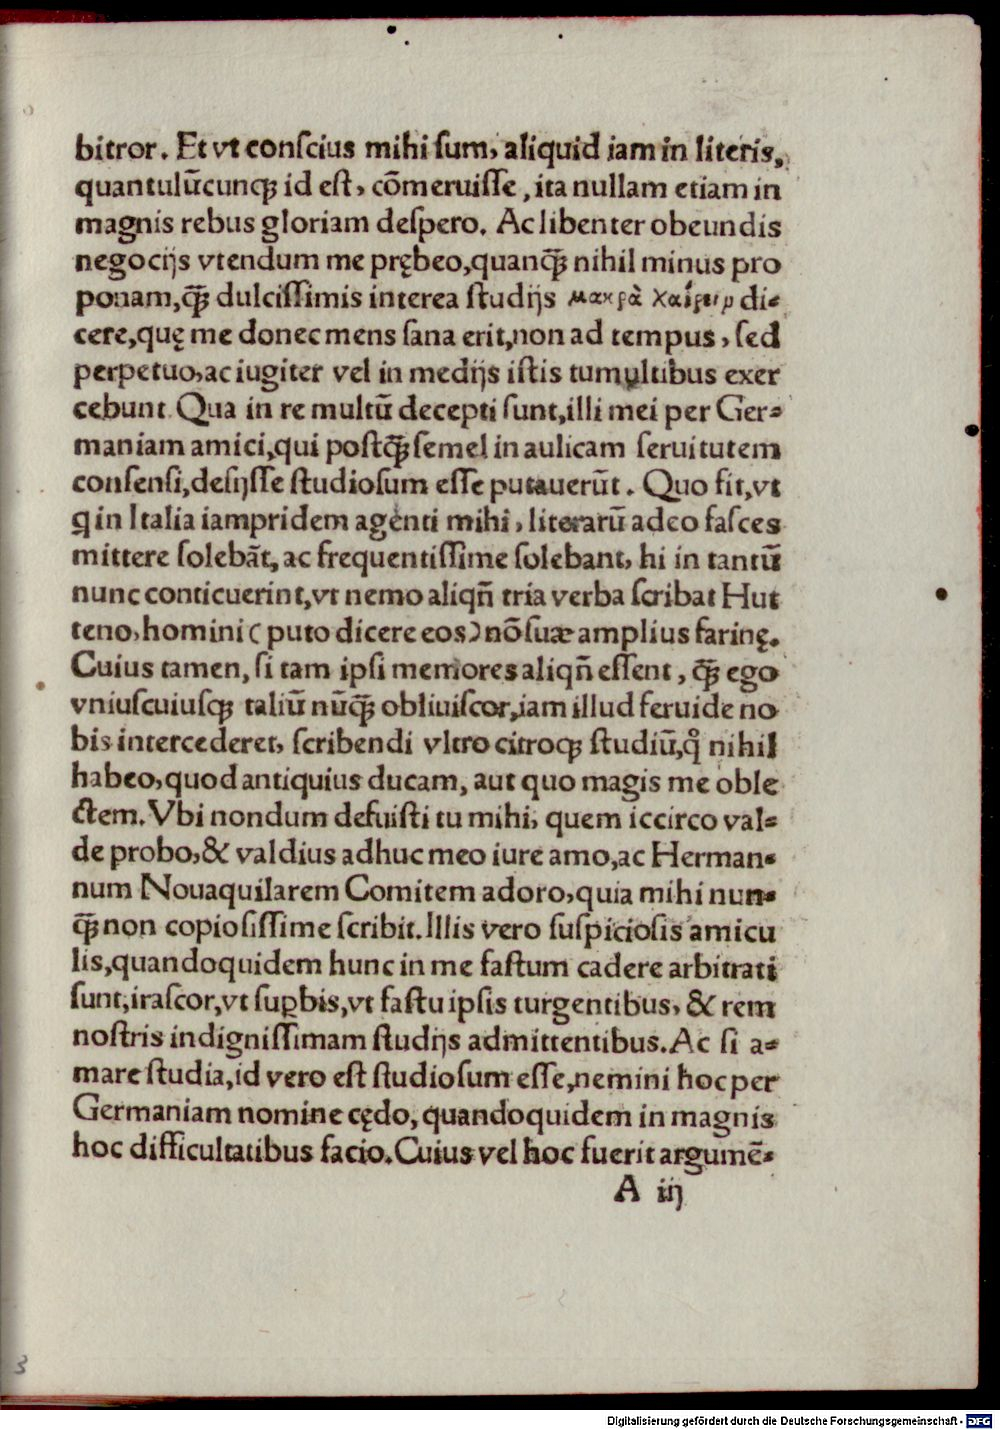 bitror. Et vt conſcius mihi ſum, aliquid iam in literis,
quantulũcunqꝫ id eſt, cõmeruiſſe, ita nullam etiam in
magnis rebus gloriam deſpero. Ac libenter obeundis
negocijs vtendum me prębeo, quanqꝫ̃ nihil minus pro
ponam, qꝫ̃ dulciſſimis interea ſtudijs μακρὰ χαίρειν di⸗
cere, quę me donec mens ſana erit, non ad tempus, ſed
perpetuo, ac iugiter vel in medijs iſtis tumultibus exer
cebunt. Qua in re multũ decepti ſunt, illi mei per Ger⸗
maniam amici, qui poſtqꝫ̃ ſemel in aulicam ſeruitutem
conſenſi, deſijſſe ſtudioſum eſſe putauerũt. Quo fit, vt
q in Italia iampridem agenti mihi, literarũ adeo faſces
mittere ſolebãt, ac frequentiſſime ſolebant, hi in tantũ
nunc conticuerint, vt nemo aliqñ tria verba ſcribat Hut
teno, homini (puto dicere eos) nõ ſuæ amplius farinę.
Cuius tamen, ſi tam ipſi memores aliqñ eſſent, qꝫ̃ ego
vniuſcuiuſqꝫ taliũ nũqꝫ̃ obliuiſcor, iam illud feruide no
bis intercederet, ſcribendi vltro citroqꝫ ſtudiũ, qͦ nihil
habeo, quod antiquius ducam, aut quo magis me oble
ctem. Vbi nondum defuiſti tu mihi, quem iccirco val⸗
de probo, & valdius adhuc meo iure amo, ac Herman⸗
num Nouaquilarem Comitem adoro, quia mihi nun⸗
qꝫ̃ non copioſiſſime ſcribit. Illis vero ſuſpicioſis amicu
lis, quandoquidem hunc in me faſtum cadere arbitrati
ſunt, iraſcor, vt ſuꝑbis, vt faſtu ipſis turgentibus, & rem
noſtris indigniſſimam ſtudijs admittentibus. Ac ſi a⸗
mare ſtudia, id vero eſt ſtudioſum eſſe, nemini hoc per
Germaniam nomine cędo, quandoquidem in magnis
hoc difficultatibus facio. Cuius vel hoc fuerit argumẽ⸗
A iij
3
Digitalisierung gefördert durch die Deutsche Forschungsgemeinschaft - DFG